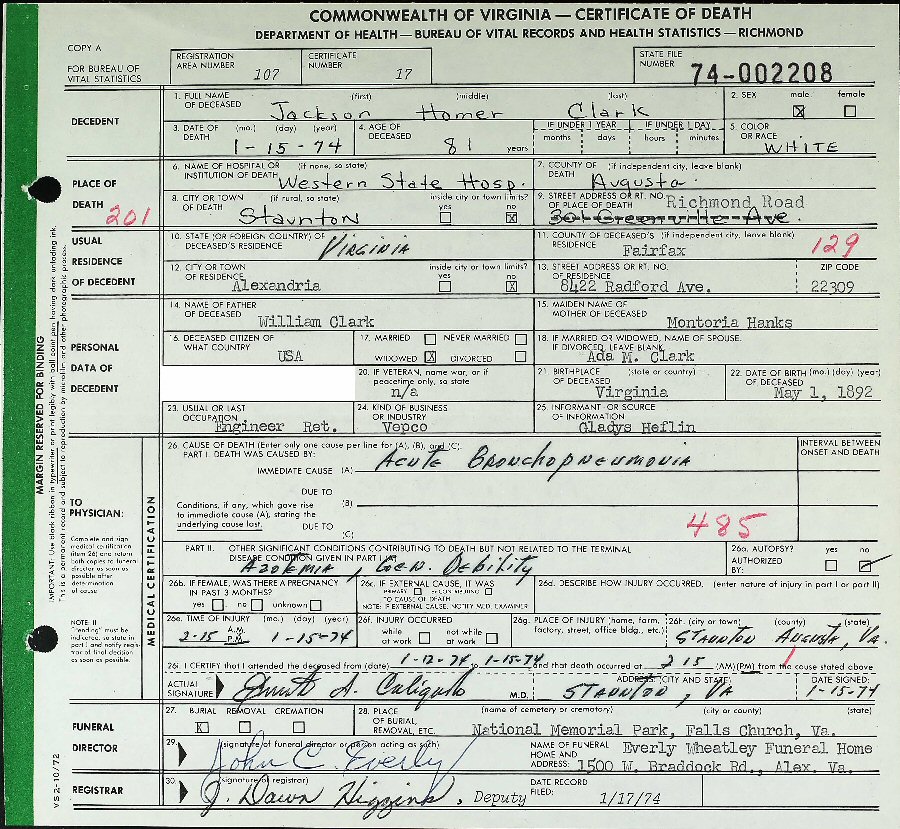 COMMONWEALTH OF VIRGINIA — CERTIFICATE OF DEATH
DEPARTMENT OF HEALTH — BUREAU OF VITAL RECORDS AND HEALTH STATISTICS — RICHMOND
COPY A
FOR BUREAU OF VITAL STATISTICS
REGISTRATION AREA NUMBER 107
CERTIFICATE NUMBER 17
STATE FILE NUMBER 74-002208
DECEDENT
1. FULL NAME OF DECEASED (first) (middle) (last)
Jackson Homer Clark
2. SEX male ☒ female ☐
3. DATE OF DEATH (mo.) (day) (year) 1-15-74
4. AGE OF DECEASED 81 years
IF UNDER 1 YEAR months days
IF UNDER 1 DAY hours minutes
5. COLOR OR RACE WHITE
PLACE OF DEATH 201
6. NAME OF HOSPITAL OR INSTITUTION OF DEATH (if none, so state) Western State Hosp.
7. COUNTY OF DEATH (if independent city, leave blank) Augusta
8. CITY OR TOWN OF DEATH (if rural, so state) Staunton
inside city or town limits? yes ☐ no ☒
9. STREET ADDRESS OR RT. NO. OF PLACE OF DEATH Richmond Road
301 Greenville Ave.
USUAL RESIDENCE OF DECEDENT
10. STATE (OR FOREIGN COUNTRY) OF DECEASED'S RESIDENCE VIRGINIA
11. COUNTY OF DECEASED'S RESIDENCE (if independent city, leave blank) Fairfax 129
12. CITY OR TOWN OF RESIDENCE Alexandria
inside city or town limits? yes ☐ no ☒
13. STREET ADDRESS OR RT. NO. OF RESIDENCE 8422 Radford Ave.
ZIP CODE 22309
PERSONAL DATA OF DECEDENT
14. NAME OF FATHER OF DECEASED William Clark
15. MAIDEN NAME OF MOTHER OF DECEASED Montoria Hanks
16. DECEASED CITIZEN OF WHAT COUNTRY USA
17. MARRIED ☐ NEVER MARRIED ☐
WIDOWED ☒ DIVORCED ☐
18. IF MARRIED OR WIDOWED, NAME OF SPOUSE. IF DIVORCED, LEAVE BLANK Ada M. Clark
20. IF VETERAN, name war, or if peacetime only, so state n/a
21. BIRTHPLACE OF DECEASED (state or country) Virginia
22. DATE OF BIRTH (mo.) (day) (year) OF DECEASED May 1, 1892
23. USUAL OR LAST OCCUPATION Engineer Ret.
24. KIND OF BUSINESS OR INDUSTRY Vepco
25. INFORMANT OR SOURCE OF INFORMATION Gladys Heflin
MARGIN RESERVED FOR BINDING
IMPORTANT: Use black ribbon in typewriter or print legibly with ball point pen having dark unfading ink.
This is a permanent record and subject to reproduction by microfilm and other photographic process.
TO PHYSICIAN:
Complete and sign medical certification (item 26) and return both copies to funeral director as soon as possible after determination of cause
NOTE: If "Pending" must be indicated, so state in part I, and notify registrar of final decision as soon as possible.
MEDICAL CERTIFICATION
26. CAUSE OF DEATH (Enter only one cause per line for (A), (B), and (C).
PART I. DEATH WAS CAUSED BY:
INTERVAL BETWEEN ONSET AND DEATH
IMMEDIATE CAUSE (A) Acute Bronchopneumonia
DUE TO
Conditions, if any, which gave rise to immediate cause (A), stating the underlying cause last.
(B)
DUE TO
(C)
485
PART II. OTHER SIGNIFICANT CONDITIONS CONTRIBUTING TO DEATH BUT NOT RELATED TO THE TERMINAL DISEASE CONDITION GIVEN IN PART I
Azotemia, Gen. Debility
26a. AUTOPSY? AUTHORIZED BY: yes ☐ no ☑
26b. IF FEMALE, WAS THERE A PREGNANCY IN PAST 3 MONTHS?
yes ☐ no ☐ unknown ☐
26c. IF EXTERNAL CAUSE, IT WAS
PRIMARY ☐ or CONTRIBUTING ☐
TO CAUSE OF DEATH
NOTE: IF EXTERNAL CAUSE, NOTIFY MED. EXAMINER
26d. DESCRIBE HOW INJURY OCCURRED. (enter nature of injury in part I or part II)
26e. TIME OF INJURY (mo.) (day) (year)
2-15 A.M. P.M. 1-15-74
26f. INJURY OCCURRED
while at work ☐ not while at work ☐
26g. PLACE OF INJURY (home, farm, factory, street, office bldg., etc.)
26h. (city or town) (county) (state)
STAUNTON AUGUSTA, VA.
26i. I CERTIFY that I attended the deceased from (date) 1-12-74 to 1-15-74 and that death occurred at 2 15 (AM)(PM) from the cause stated above
ACTUAL SIGNATURE M.D.
ADDRESS (CITY AND STATE) STAUNTON, VA
DATE SIGNED: 1-15-74
FUNERAL DIRECTOR
27. BURIAL REMOVAL CREMATION
☒ ☐ ☐
28. PLACE OF BURIAL, REMOVAL, ETC. (name of cemetery or crematory) (city or county) (state)
National Memorial Park, Falls Church, Va.
29. (signature of funeral director or person acting as such)
John C. Everly
NAME OF FUNERAL HOME AND ADDRESS: Everly Wheatley Funeral Home
1500 W. Braddock Rd., Alex. Va.
REGISTRAR
30. (signature of registrar)
J. Dawn Higgins, Deputy
DATE RECORD FILED: 1/17/74
VS 2-10/72